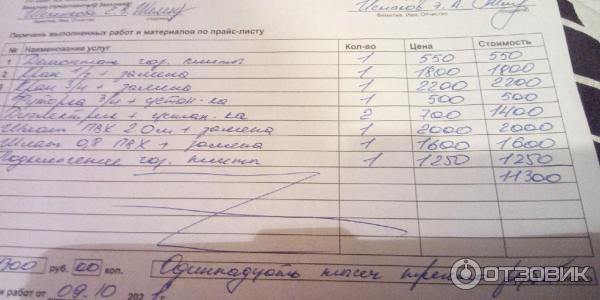 Фамилия, Имя, Отчество
Фамилия, Имя, Отчество
Перечень выполненных работ и материалов по прайс-листу
№ Наименование услуг Кол-во Цена Стоимость
1 Демонтаж газ. плиты 1 550 550
2 Кран 1/2 + замена 1 1800 1800
3 Кран 3/4 + замена 1 2200 2200
Футорка 3/4 + устан-ка 1 500 500
Диэлектрик + устан-ка 2 700 1400
Шланг ПВХ 2.0м + замена 1 2000 2000
Шланг 0,8 ПВХ + замена 1 1600 1600
Подключение газ. плиты 1 1250 1250
11300
руб. 00 коп. Одиннадцать тысяч триста
работ от 09.10 202 г.
ОТЗОВИК